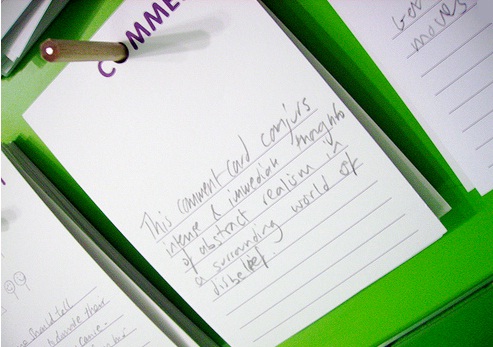 COMME
This comment card conjurs
intense & immediate thoughts
of abstract realism in
a surrounding world of
disbelief.
moves
99
should tell